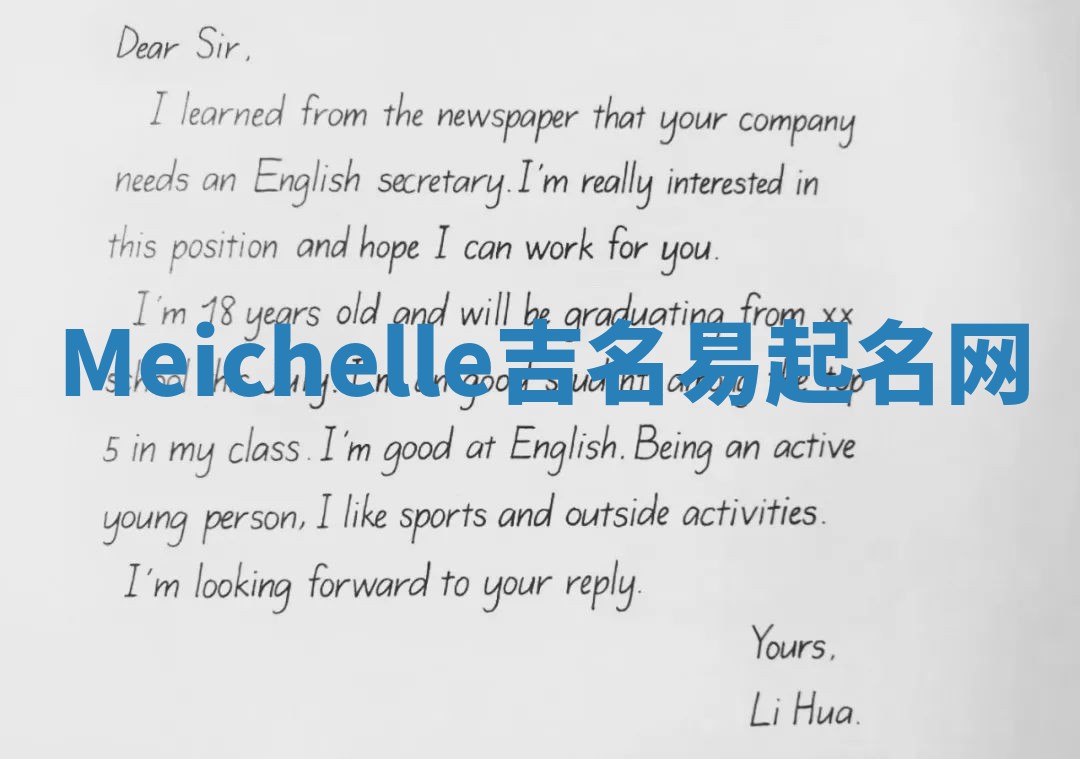 Dear Sir,
I learned from the newspaper that your company
needs an English secretary. I'm really interested in
this position and hope I can work for you.
I'm 18 years old and will be graduating from xx
Meichelle吉名易起名网
school this July. I'm an good student among the top
5 in my class. I'm good at English. Being an active
young person, I like sports and outside activities.
I'm looking forward to your reply.
Yours,
Li Hua.